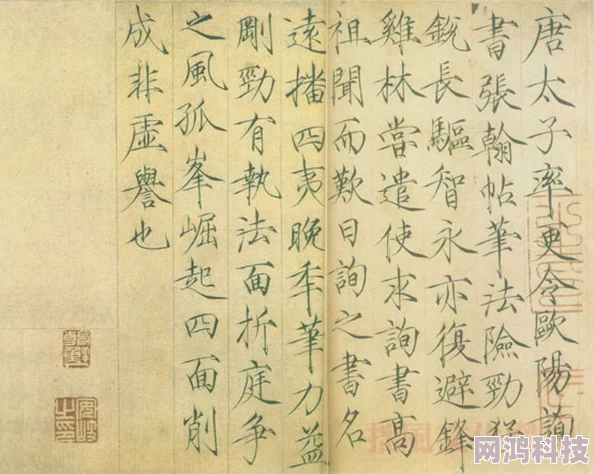 唐太子率更令歐陽詢
書張翰帖筆法險勁猛
銳長驅智永亦復避鋒
雞林嘗遣使求詢書高
祖聞而歎曰詢之書名
遠播四夷晚年筆力益
剛勁有執法面折庭爭
之風孤峯崛起四面削
成非虛譽也
网鸿科技